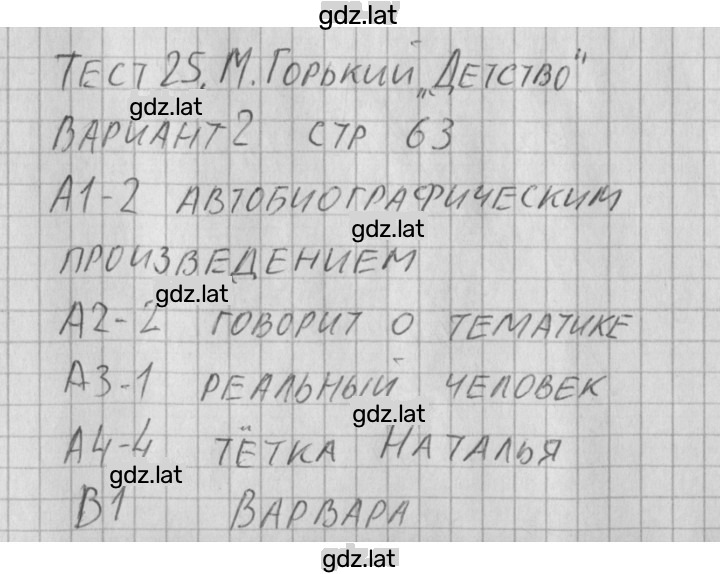 gdz.lat
ТЕСТ 25. М. ГОРЬКИЙ „ДЕТСТВО"
gdz.lat
ВАРИАНТ 2 СТР 63
А1-2 АВТОБИОГРАФИЧЕСКИМ
gdz.lat
ПРОИЗВЕДЕНИЕМ
gdz.lat
А2-2 ГОВОРИТ О ТЕМАТИКЕ
А3-1 РЕАЛЬНЫЙ ЧЕЛОВЕК
gdz.lat
А4-4 ТЁТКА НАТАЛЬЯ
gdz.lat
В1 ВАРВАРА
gdz.lat